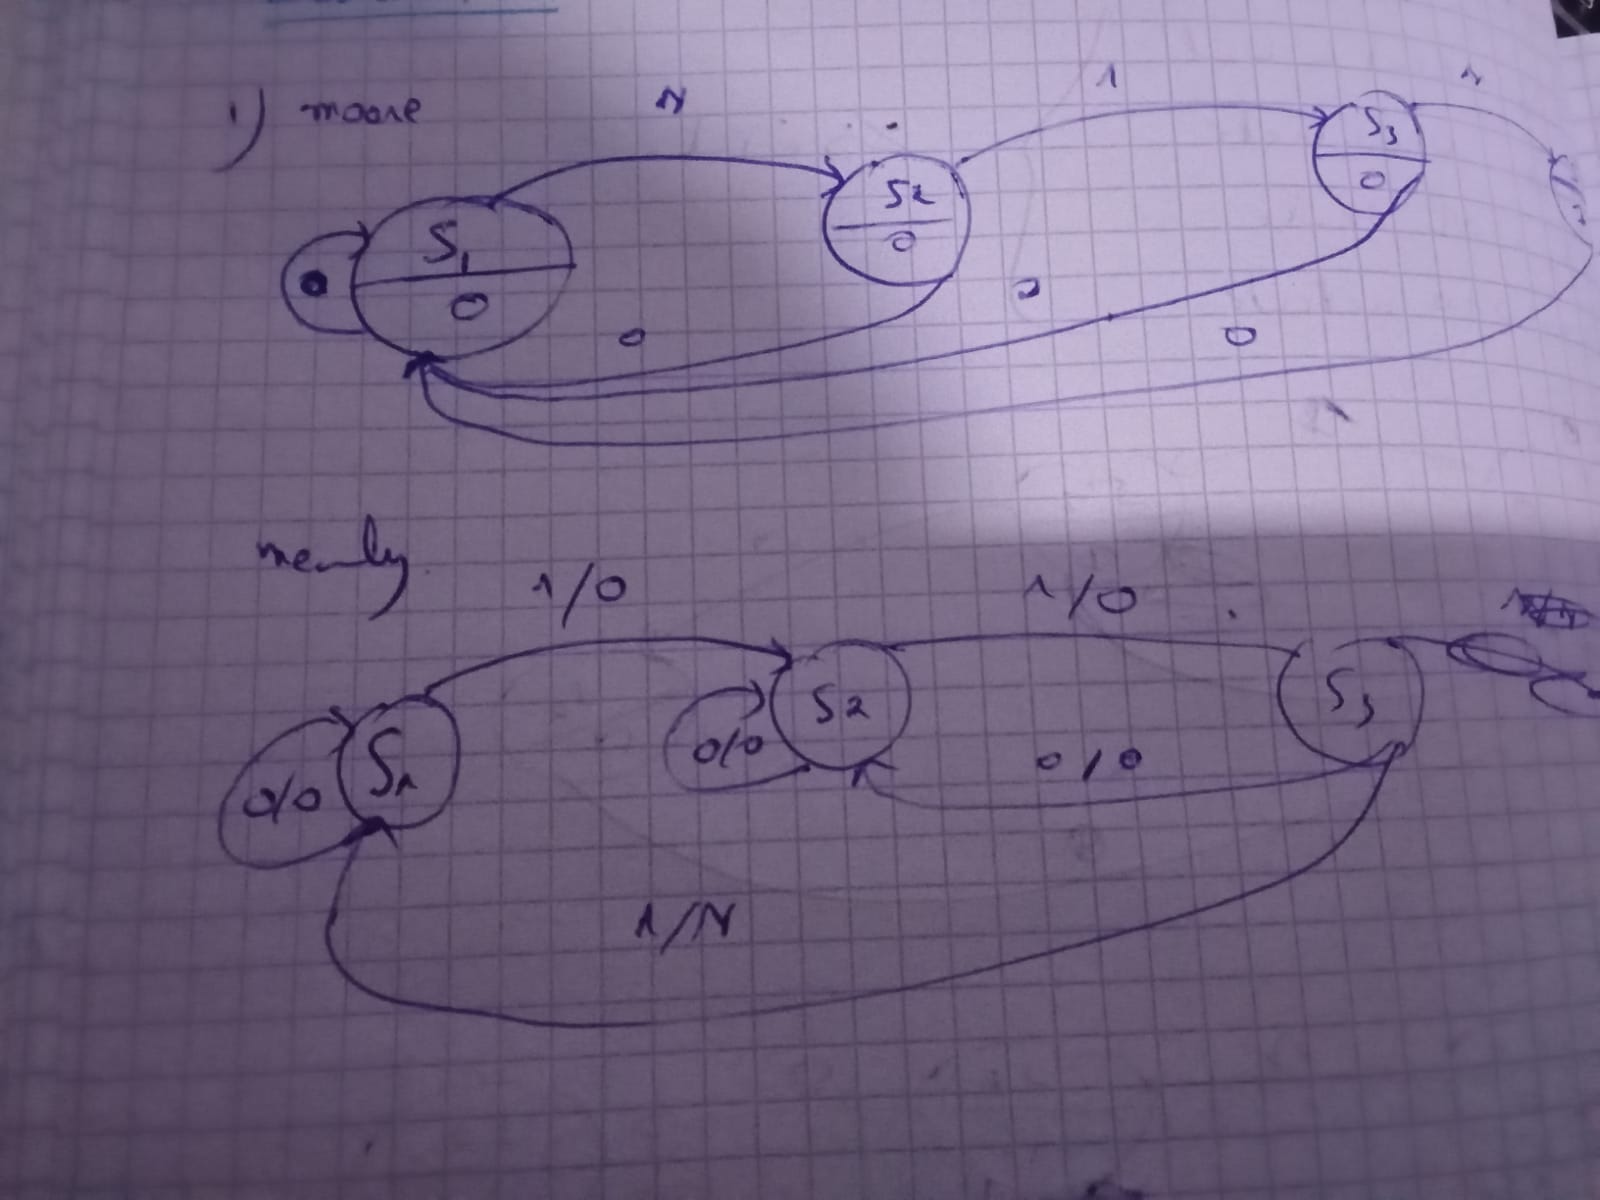 1) moore
1
1
1
S1
0
0
S2
0
S3
0
0
0
0
mealy
1/0
1/0
S1
0/0
S2
0/0
S3
0/0
1/1